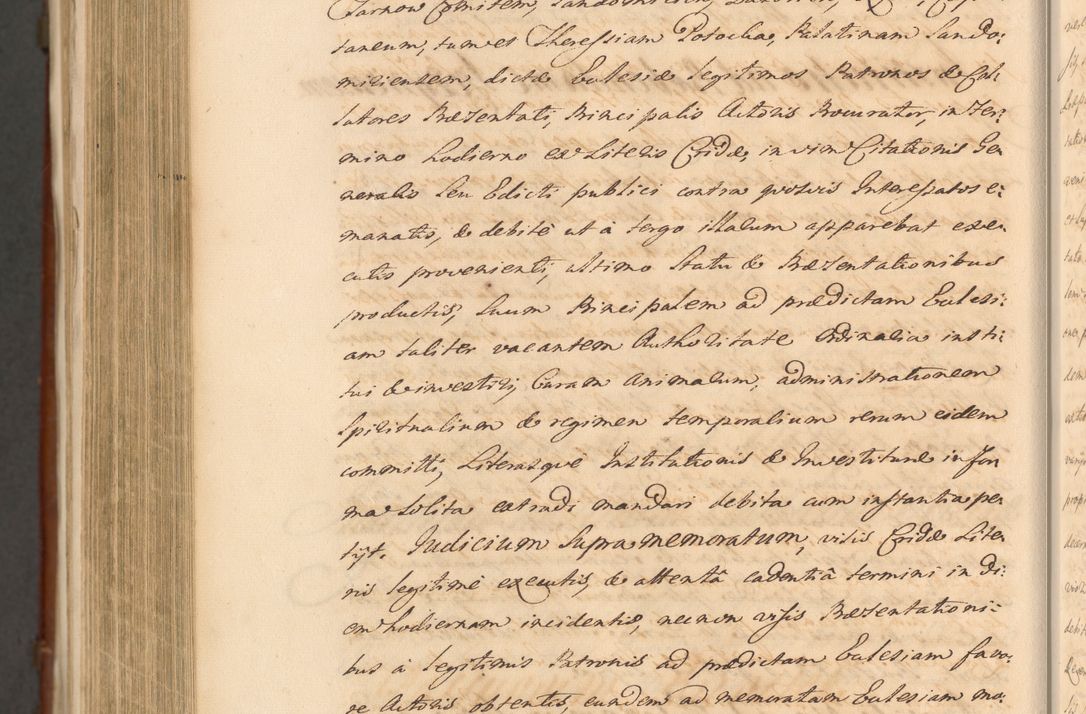 Tarnow Comitem, Sandomirien,
taneum, tum et Theressiam Potocka, Palatinam Sando:
miriensem, dictæ Eclesiæ legitimos Patronos & Col:
latores Præsentati, Principalis Actoris Procurator, in Ter:
mino hodierno ex Literis Cridæ, in vim Citationis Ge:
neralis seu Edicti publici contra quosvis Interessatos e:
manatis, & debite ut à tergo illarum apparebat exe:
cutis provenienti, ultimo Statu & Præsentationibus
productis, Suum Principalem ad prædictam Eclesi:
am taliter vacantem Authoritate Ordinaria insti:
tui & investiri, Curam Animarum, administrationem
Spiritualium & regimen temporalium rerum eidem
committi, Literasque Institutionis & Investituræ in for:
ma solita extradi mandari debita cum instantia pe:
tijt. Judicium Supramemoratum, visis Cridæ Lite:
ris legitimè executis, & attentâ cadentiâ termini in di:
em hodiernam incidentis, necnon visis Præsentationi:
bus à legitimis Patronis ad prædictam Eclesiam favo:
re Actoris obtentis, eundem ad memoratam Eclesiam mo: